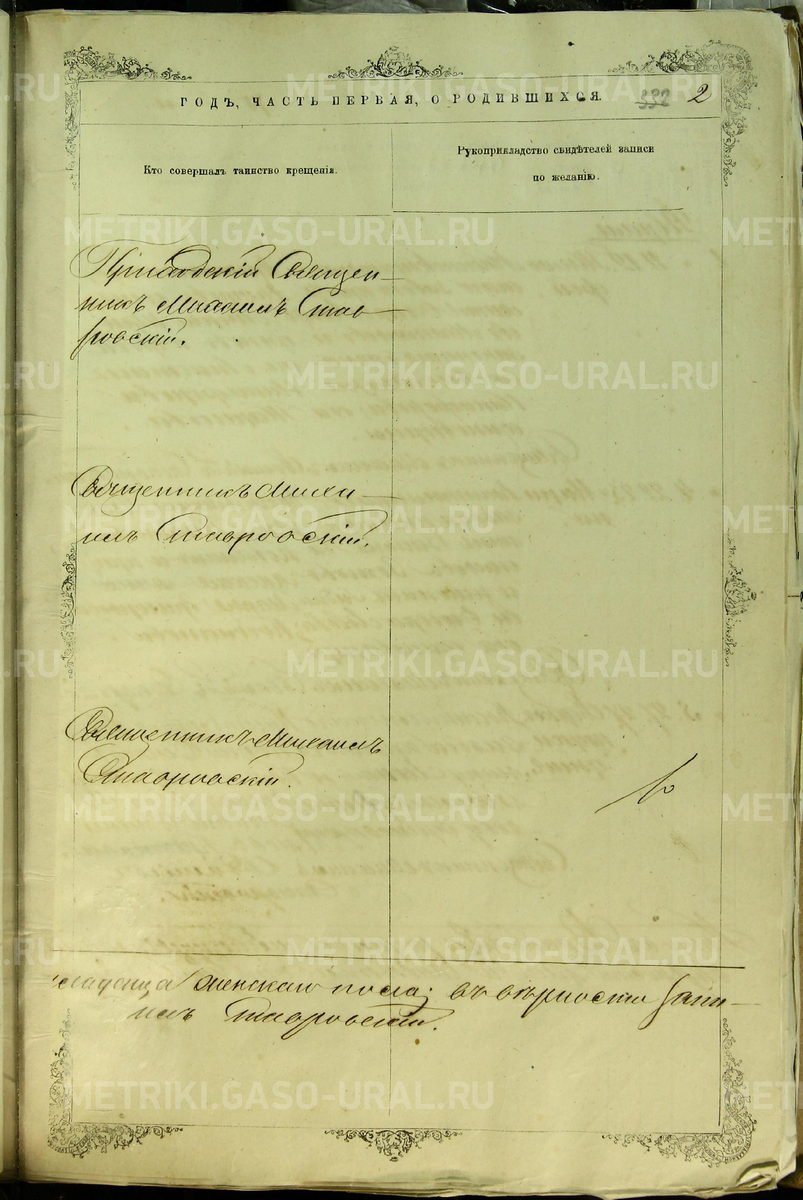 ГОДЪ, ЧАСТЬ ПЕРВАЯ, О РОДИВШИХСЯ. 332 2
Кто совершалъ таинство крещенія.
Рукоприкладство свидѣтелей записи
по желанію.
Приходскій Священ-
никъ Михаилъ Став-
ровскій.
Священникъ Миха-
илъ Ставровскій.
Священникъ Михаилъ
Ставровскій.
младенца женскаго пола; въ вѣрности запи-
илъ Ставровскій.
METRIKI.GASO-URAL.RU